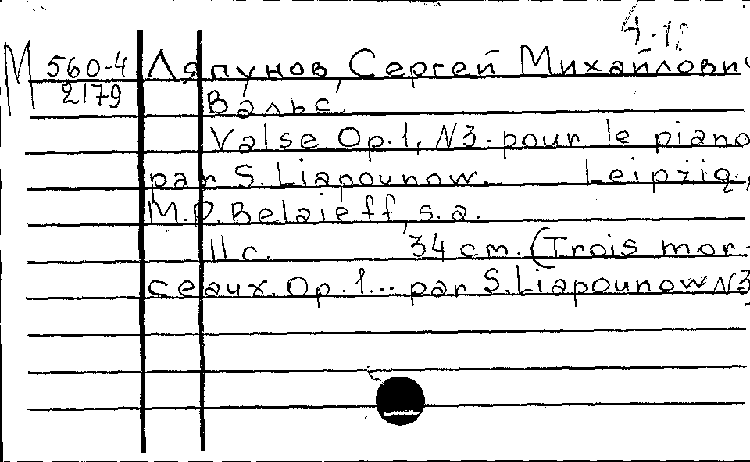 4-12
М 560-4 Ляпунов, Сергей Михайлович
2179 Вальс.
Valse Op.1, N3. pour le piano
par S. Liapounow. Leipzig,
M.P. Belaieff, s.a.
11 с. 34 см. (Trois mor-
ceaux. Op.1... par S. Liapounow N3